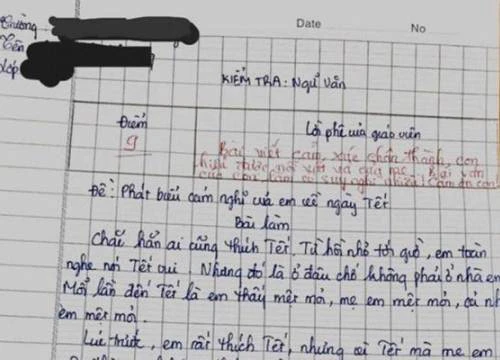 Date No
Trường
Tên
Lớp
KIỂM TRA: Ngữ Văn
Điểm Lời phê của giáo viên
9 Bài viết cảm xúc chân thành, con
của con làm cô suy nghĩ nhiều! Cảm ơn con!
Đề: Phát biểu cảm nghĩ của em về ngày Tết
Bài làm
Chắc hẳn ai cũng thích Tết. Từ hồi nhỏ tới giờ, em toàn
nghe nói Tết vui. Nhưng đó là ở đâu chớ không phải ở nhà em
Mỗi lần đến Tết là em thấy mệt mỏi, mẹ em mệt mỏi, cả nh
em mệt mỏi.
Lúc trước, em rất thích Tết, nhưng vì Tết mà mẹ em